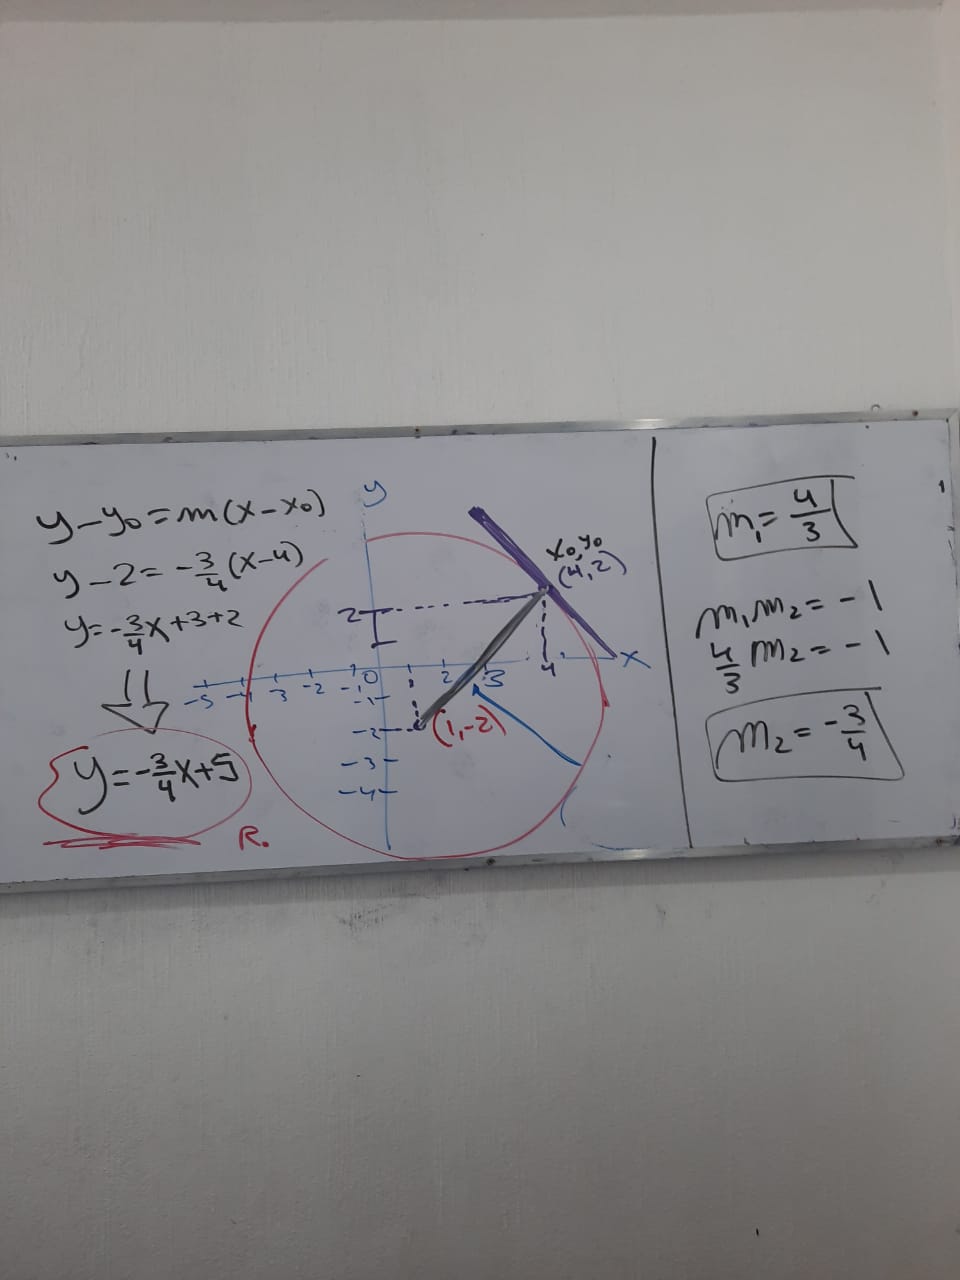 y-y₀=m(x-x₀)
y-2=-3/4(x-4)
y=-3/4x+3+2
y=-3/4x+5
R.
y
x₀,y₀
(4,2)
2
x
-5 -4 -3 -2 -1 0 2 3 4
-1
-2
(1,-2)
-3
-4
m₁=4/3
m₁m₂=-1
4/3 m₂=-1
m₂=-3/4